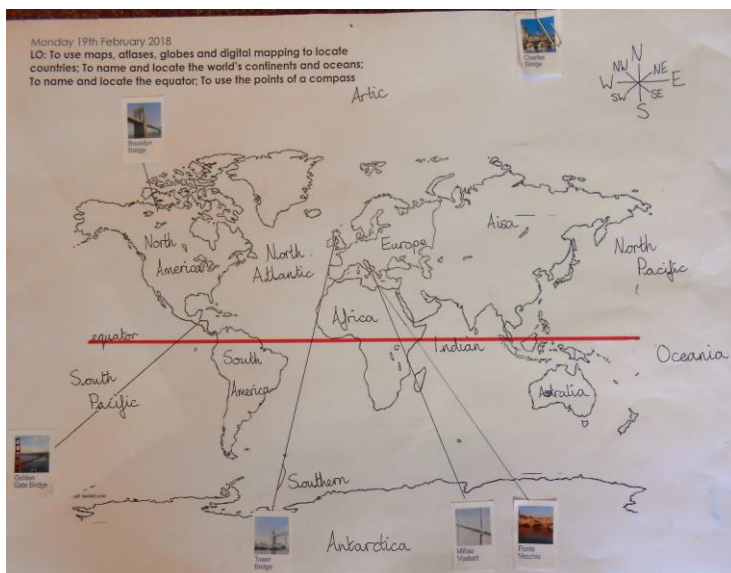 Monday 19th February 2018
LO: To use maps, atlases, globes and digital mapping to locate
countries; To name and locate the world's continents and oceans;
To name and locate the equator; To use the points of a compass
Charles
Bridge
N
NW NE
W E
SW SE
S
Artic
Brooklyn
Bridge
North
America
North
Atlantic
Europe
Aisa
North
Pacific
Africa
equator
Indian
Oceania
South
America
South
Pacific
Golden
Gate Bridge
Southern
Tower
Bridge
Antarctica
Millau
Viaduct
Ponte
Vecchio